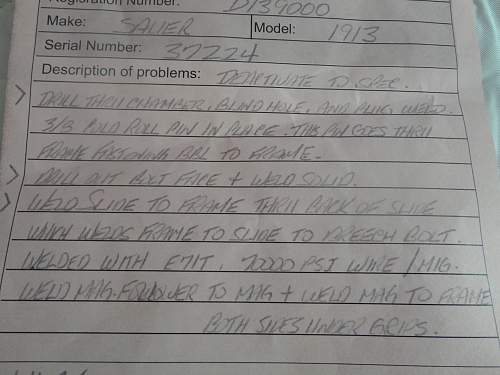 Registration Number: D139000
Make: SAUER Model: 1913
Serial Number: 37224
Description of problems: DEACTIVATE TO SPEC.
DRILL THRU CHAMBER, BLIND HOLE, AND PLUG WELD.
3/8 ROLL PIN IN PLACE. THIS PIN GOES THRU
FRAME FASTENING BBL TO FRAME.
DRILL OUT BOLT FACE + WELD SOLID.
WELD SLIDE TO FRAME THRU BACK OF SLIDE
WHICH WELDS FRAME TO SLIDE TO BREECH BOLT.
WELDED WITH E71T, 70000 PSI WIRE / MIG.
WELD MAG. FOLLOWER TO MAG + WELD MAG TO FRAME
BOTH SIDES UNDER GRIPS.